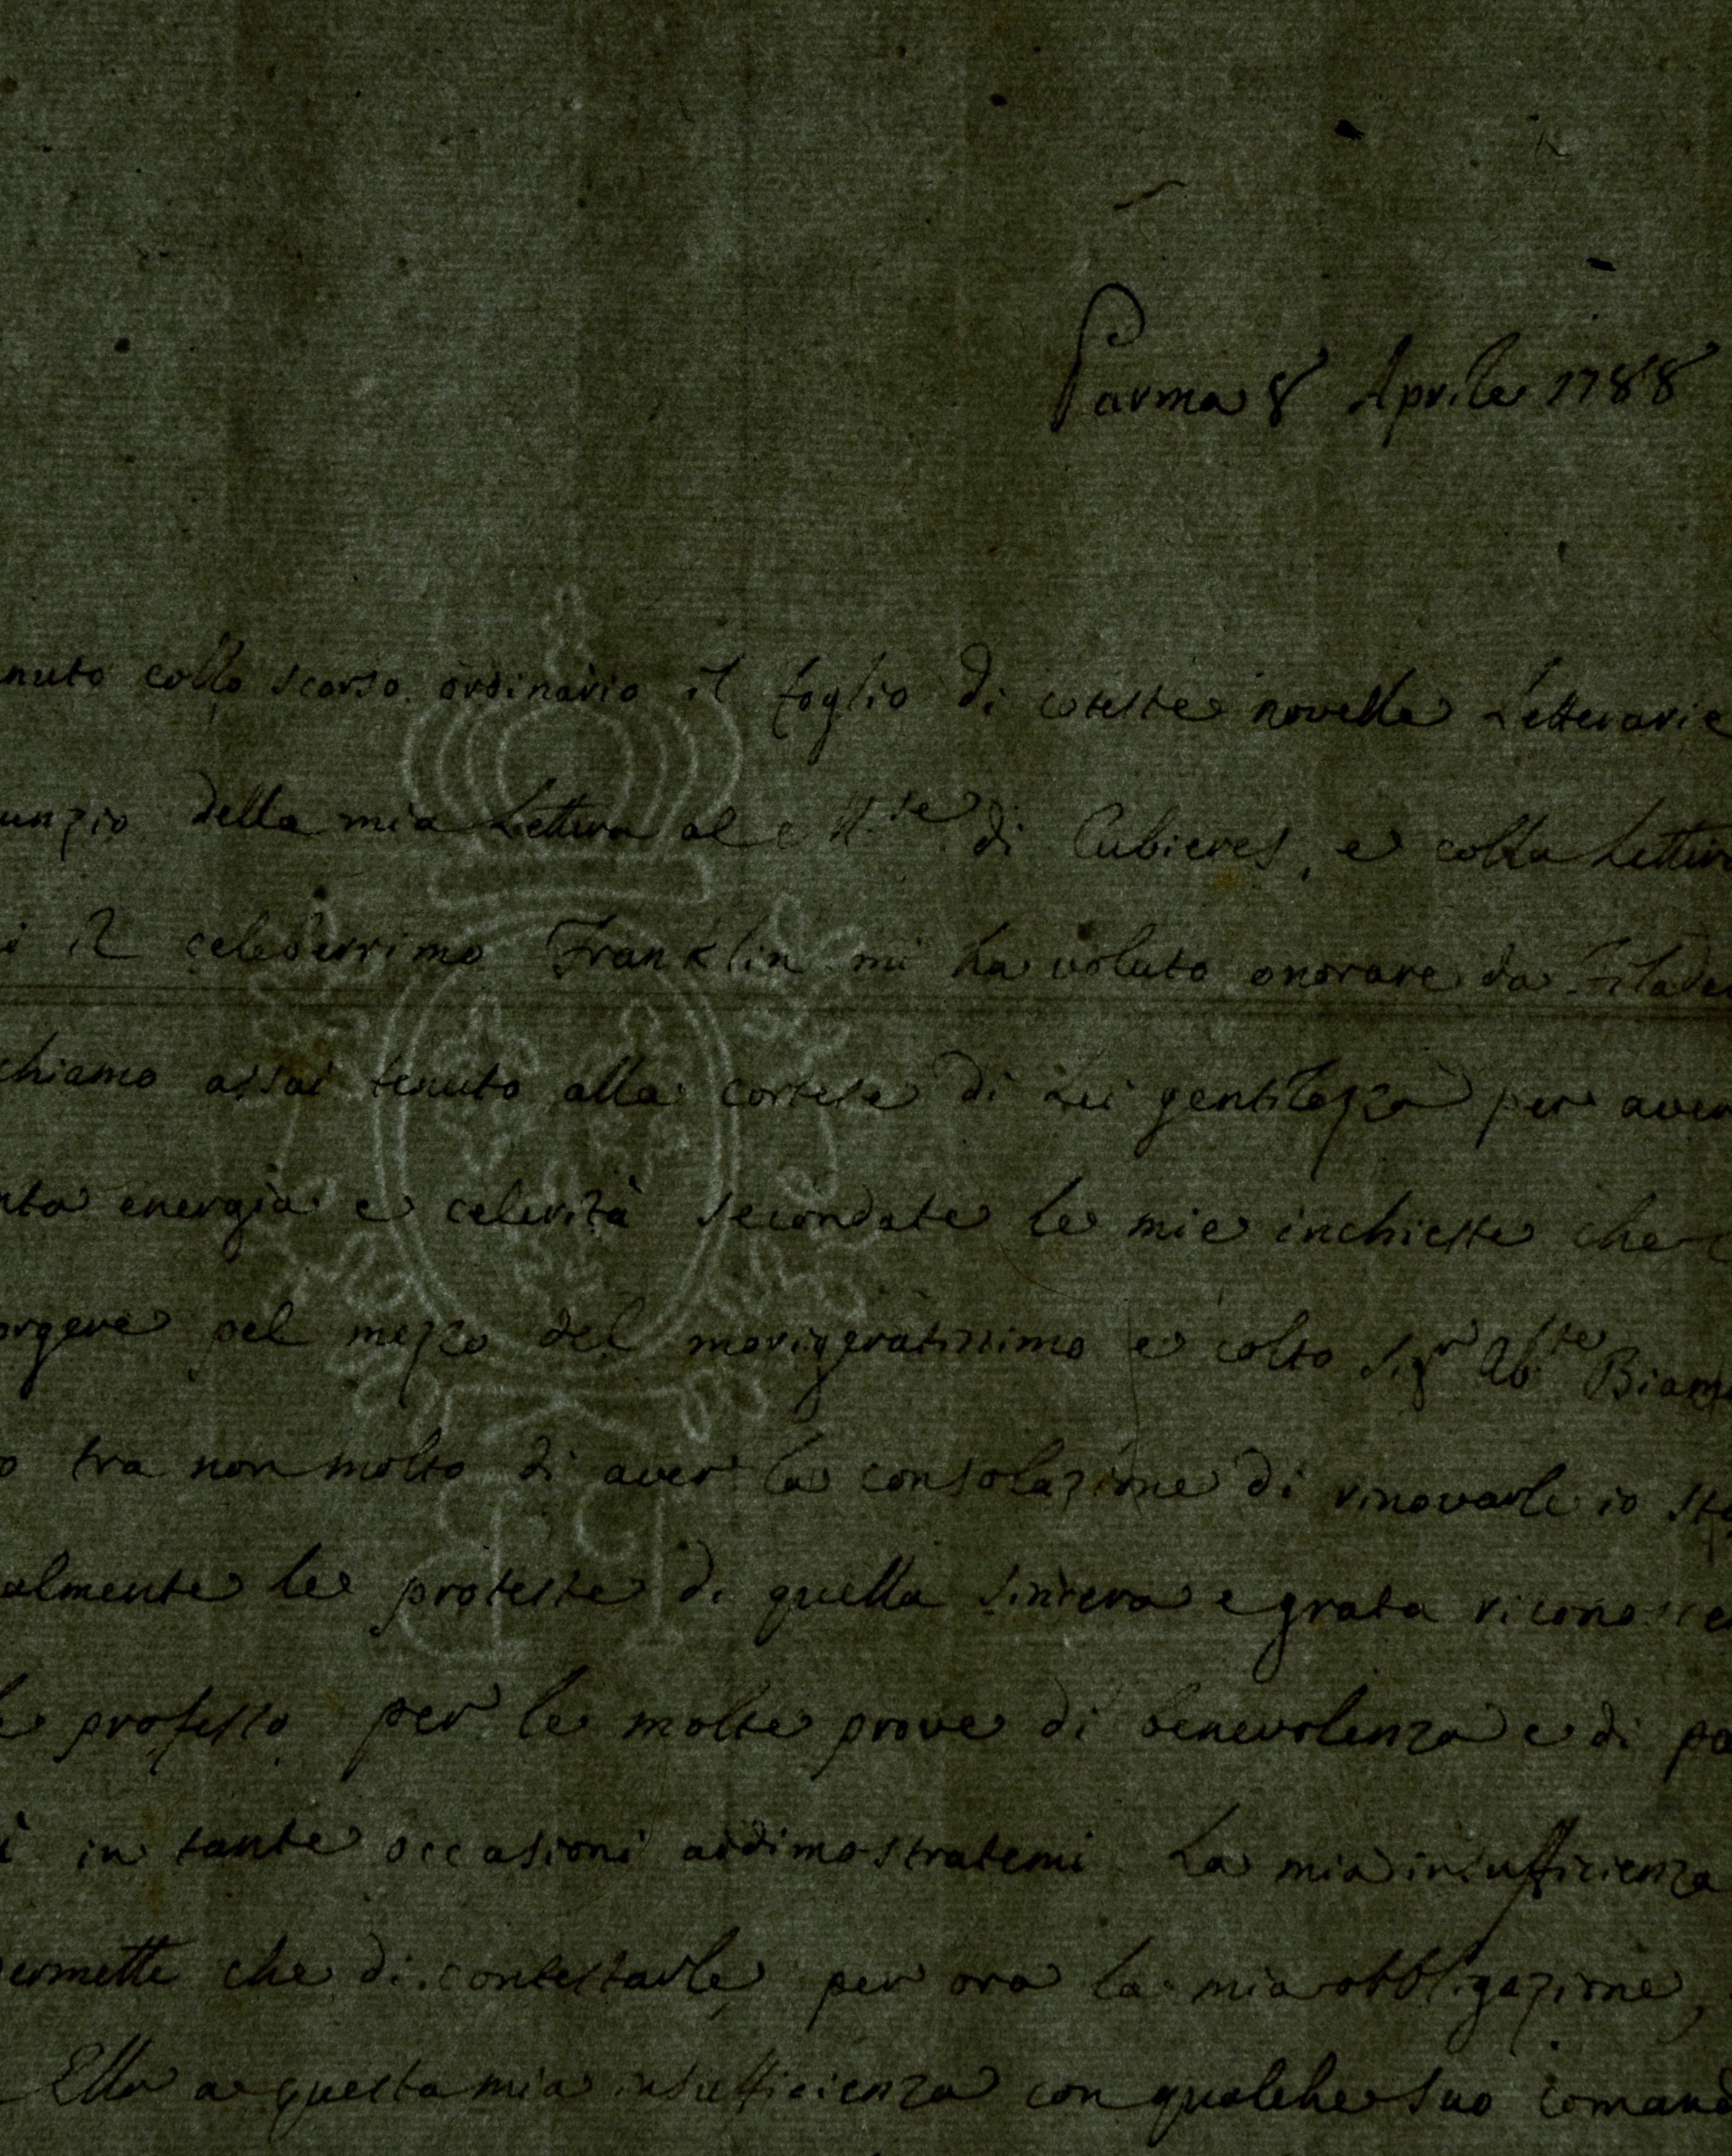 Parma 8 Aprile 1788
nuto collo scorso ordinario il foglio di coteste novelle Letterarie
unzio della mia Lettera al M.se di Cubieres, e colla Letter
il celeberrimo Franklin mi ha voluto onorare da Filade
chiamo assai tenuto alla cortese di Lei gentilezza per aver
nta energia e celerità secondate le mie inchieste che
orgere pel mezzo del morigeratissimo e colto Sigr Abte
o tra non molto di aver la consolazione di rinovarle io ste
almente le proteste di quella sincera e grata riconosce
e professo per le molte prove di benevolenza e di pa
i in tante occasioni addimostratemi. La mia insufficienza
ermette che di contestarle per ora la mia obbligazione,
Ella a questa mia insufficienza con qualche suo comand
BP